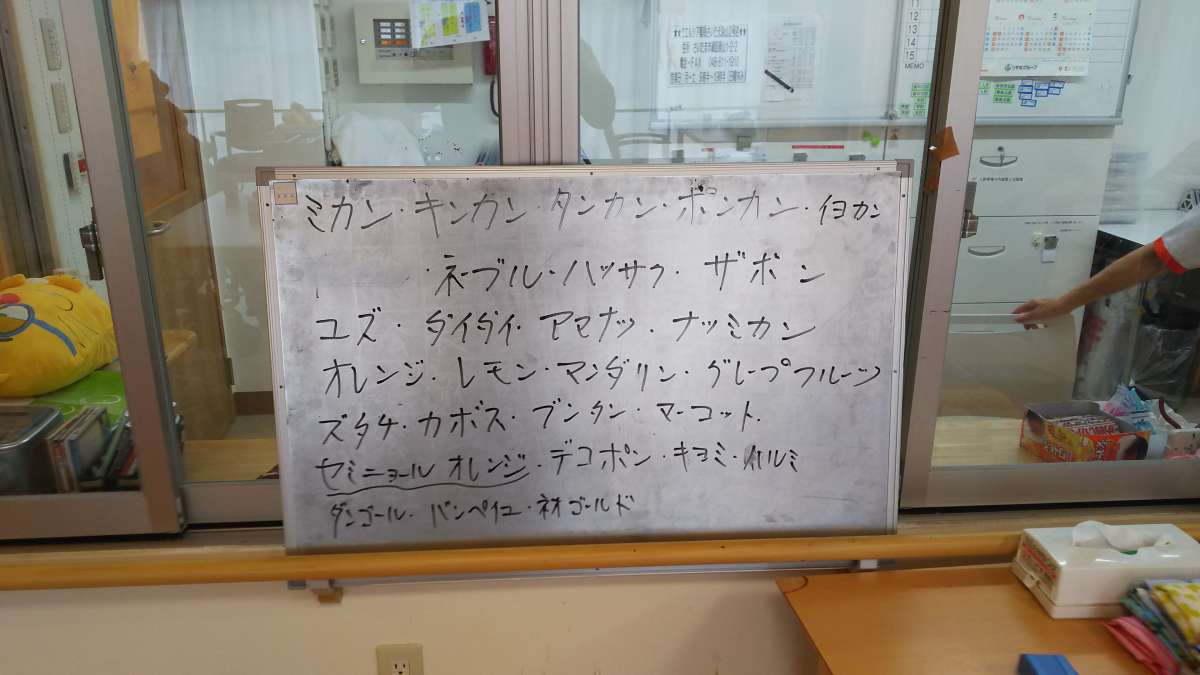 ミカン・キンカン・タンカン・ポンカン・イヨカン
ネーブル・ハッサク・ザボン
ユズ・ダイダイ・アマナツ・ナツミカン
オレンジ・レモン・マンダリン・グレープフルーツ
スダチ・カボス・ブンタン・マーコット・
セミニョール オレンジ・デコポン・キヨミ・ハルミ
ダンゴール・バンペイユ・ネオゴールド
11
12
13
14
15
MEMO